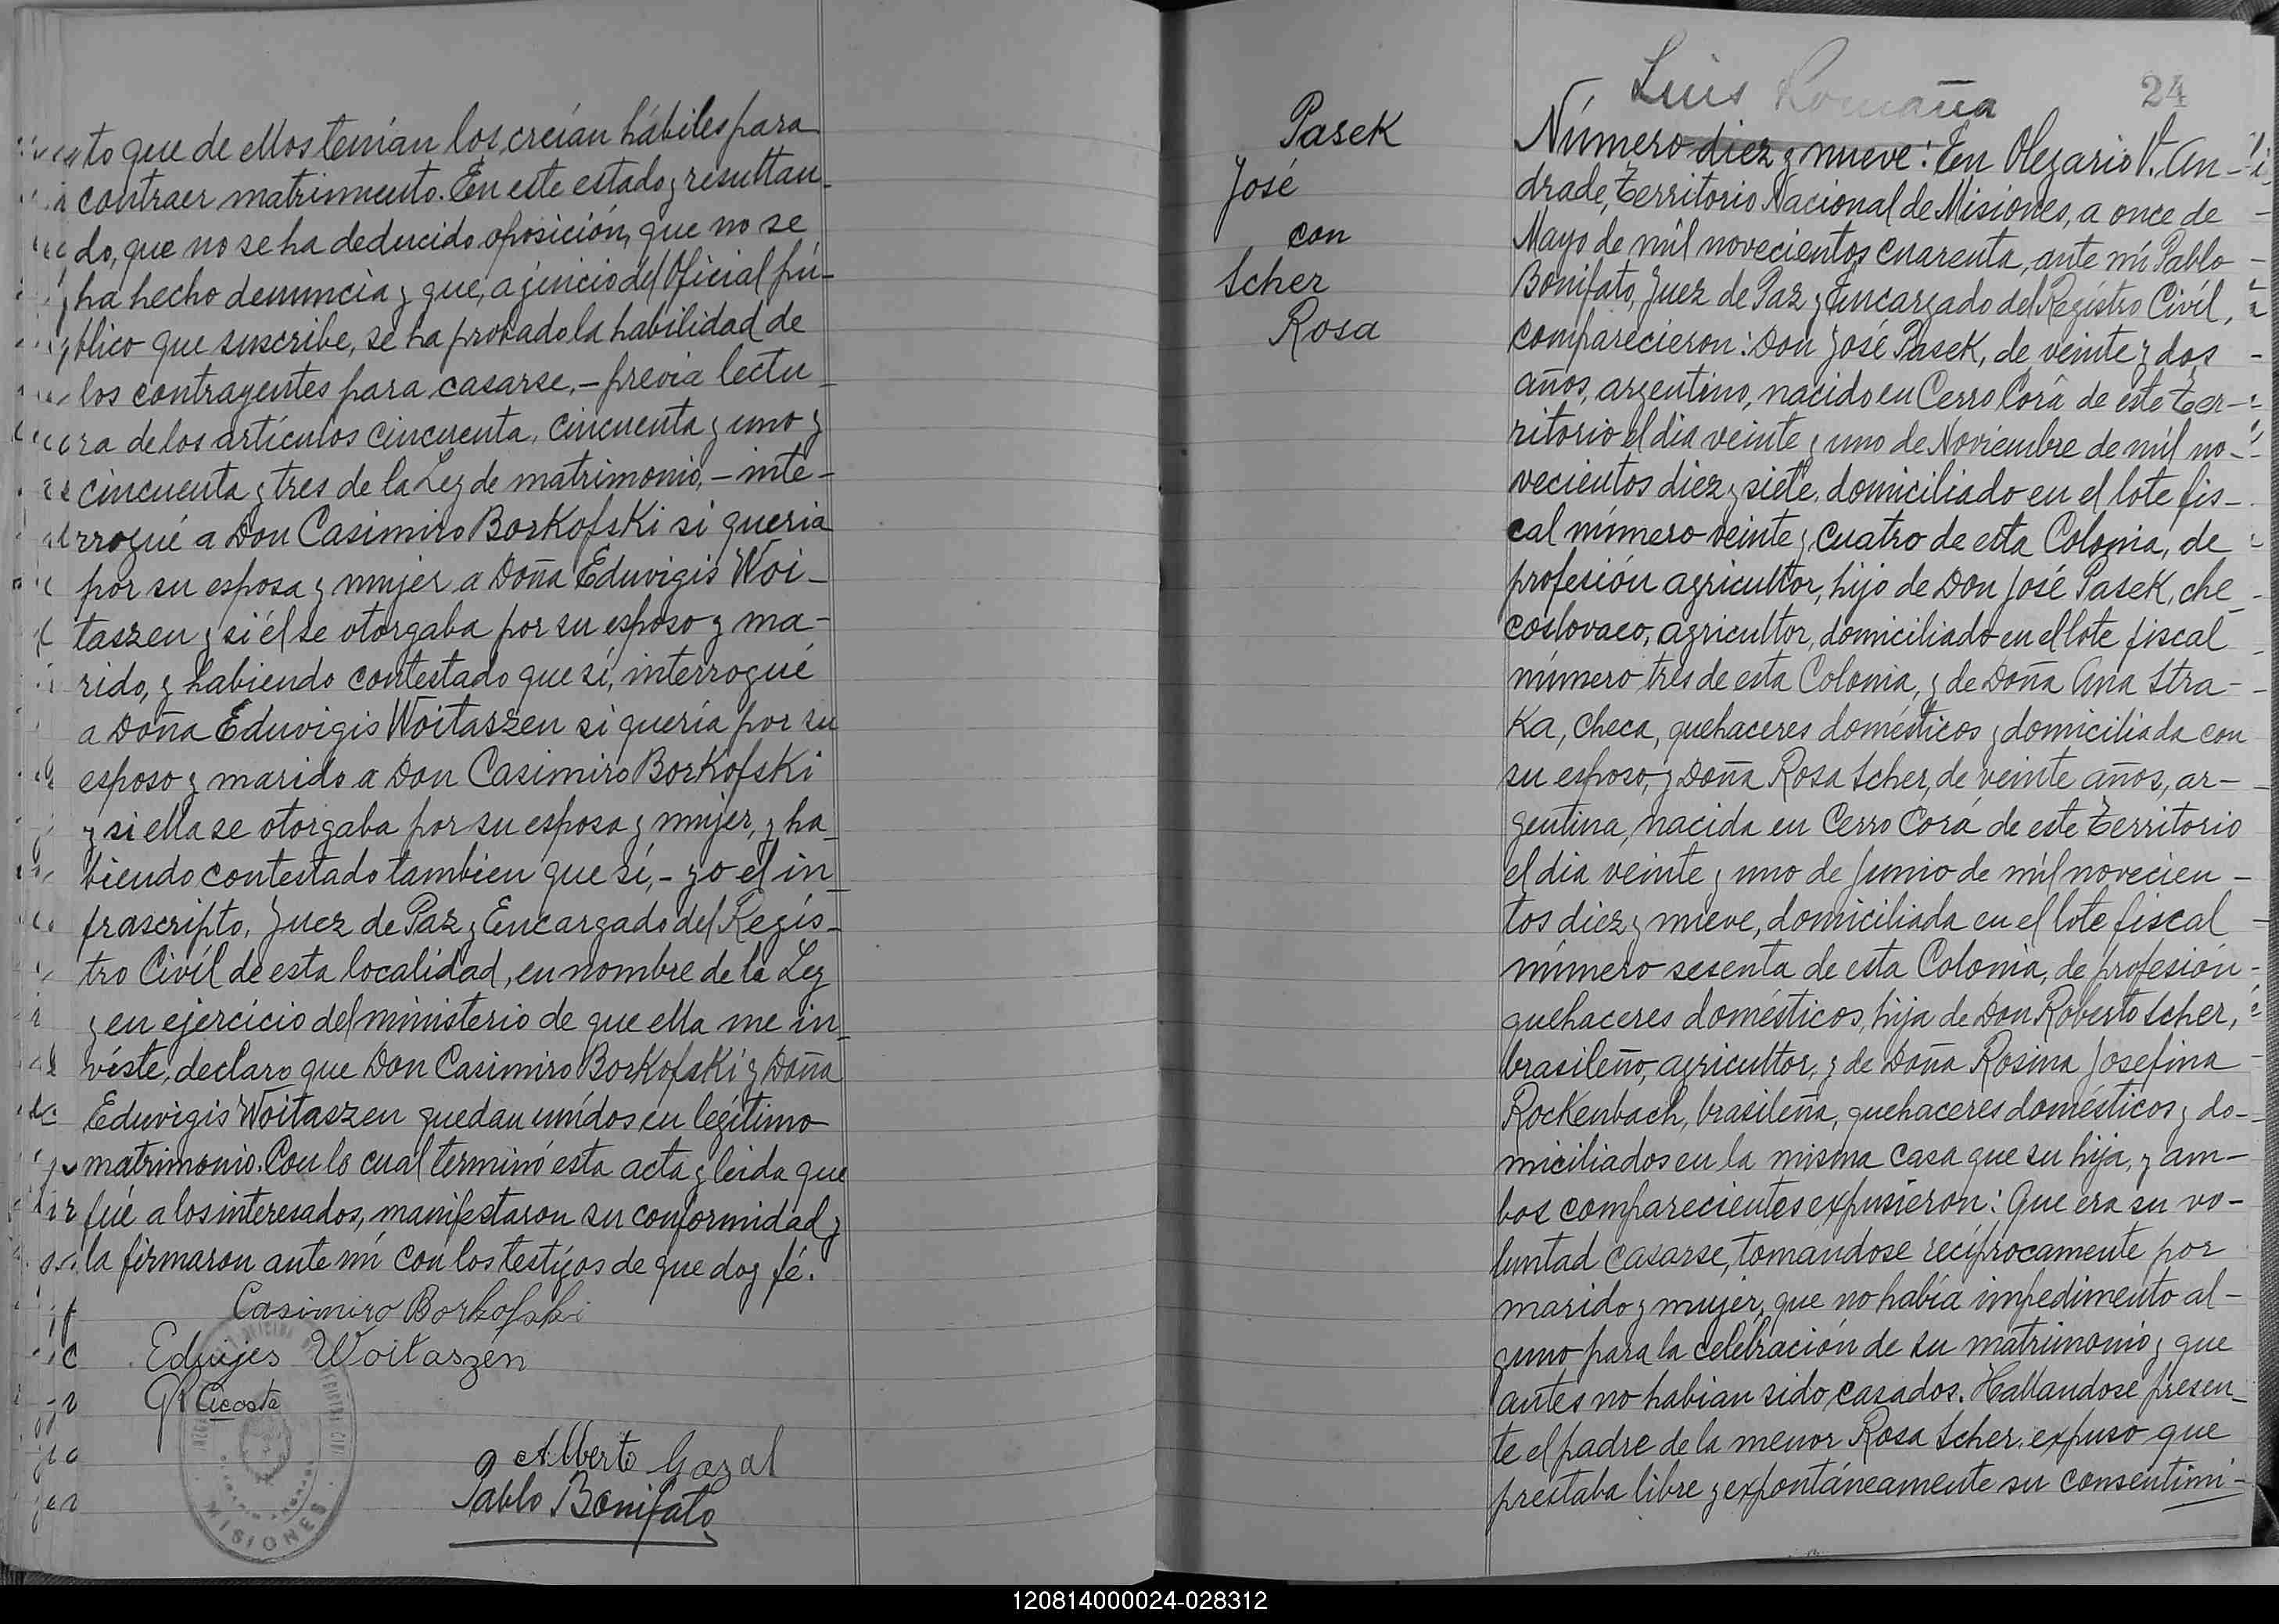 to que de ellos tenían los creían hábiles para
contraer matrimonio. En este estado y resultan-
do, que no se ha deducido oposición, que no se
ha hecho denuncia y que, a juicio del Oficial pú-
blico que suscribe, se ha probado la habilidad de
los contrayentes para casarse, - previa lectu-
ra de los artículos cincuenta, cincuenta y uno y
cincuenta y tres de la Ley de matrimonio, - inte-
rrogué a Don Casimiro Borkofski si queria
por su esposa y mujer a Doña Eduvigis Woi-
taszen y si él se otorgaba por su esposo y ma-
rido, y habiendo contestado que sí, interrogué
a Doña Eduvigis Woitaszen si quería por su
esposo y marido a Don Casimiro Borkofski
y si ella se otorgaba por su esposa y mujer, y ha-
biendo contestado tambien que sí, - yo el in-
frascripto, Juez de Paz y Encargado del Regis-
tro Civíl de esta localidad, en nombre de la Ley
y en ejercicio del ministerio de que ella me in-
viste, declaro que Don Casimiro Borkofski y Doña
Eduvigis Woitaszen quedan unídos en legítimo
matrimonio. Con lo cual terminó esta acta y leida que
fué a los interesados, manifestaron su conformidad y
la firmaron ante mí con los testigos de que doy fé.
Casimiro Borkofski
Eduijes Woitaszen
Acosta
Alberto Gazal
Pablo Bonifato
MISIONES
Luis Romaña
24
Pasek
José
con
Scher
Rosa
Número diez y nueve: En Olegario V. An-
drade, Territorio Nacional de Misiones, a once de
Mayo de míl novecientos cuarenta, ante mí Pablo
Bonifato, Juez de Paz y Encargado del Registro Civíl,
comparecieron: Don José Pasek, de veinte y dos
años, argentino, nacido en Cerro Corá de este Ter-
ritorio el dia veinte y uno de Noviembre de míl no-
vecientos diez y siete, domiciliado en el lote fis-
cal número veinte y cuatro de esta Colonia, de
profesión agricultor, hijo de Don José Pasek, che-
coslovaco, agricultor, domiciliado en el lote fiscal
número tres de esta Colonia, y de Doña Ana Stra-
ka, checa, quehaceres domésticos y domiciliada con
su esposo, y Doña Rosa Scher, de veinte años, ar-
gentina, nacida en Cerro Corá de este Territorio
el dia veinte y uno de Junio de míl novecien-
tos diez y nueve, domiciliada en el lote fiscal
número sesenta de esta Colonia, de profesión
quehaceres domésticos, hija de Don Roberto Scher,
brasileño, agricultor, y de Doña Rosina Josefina
Rockenbach, brasileña, quehaceres domésticos y do-
miciliados en la misma casa que su hija, y am-
bos comparecientes expusieron: Que era su vo-
luntad casarse, tomandose recíprocamente por
marido y mujer, que no había impedimento al-
guno para la celebración de su matrimonio y que
antes no habian sido casados. Hallandose presen-
te el padre de la menor Rosa Scher, expuso que
prestaba libre y expontáneamente su consentimi-
120814000024-028312